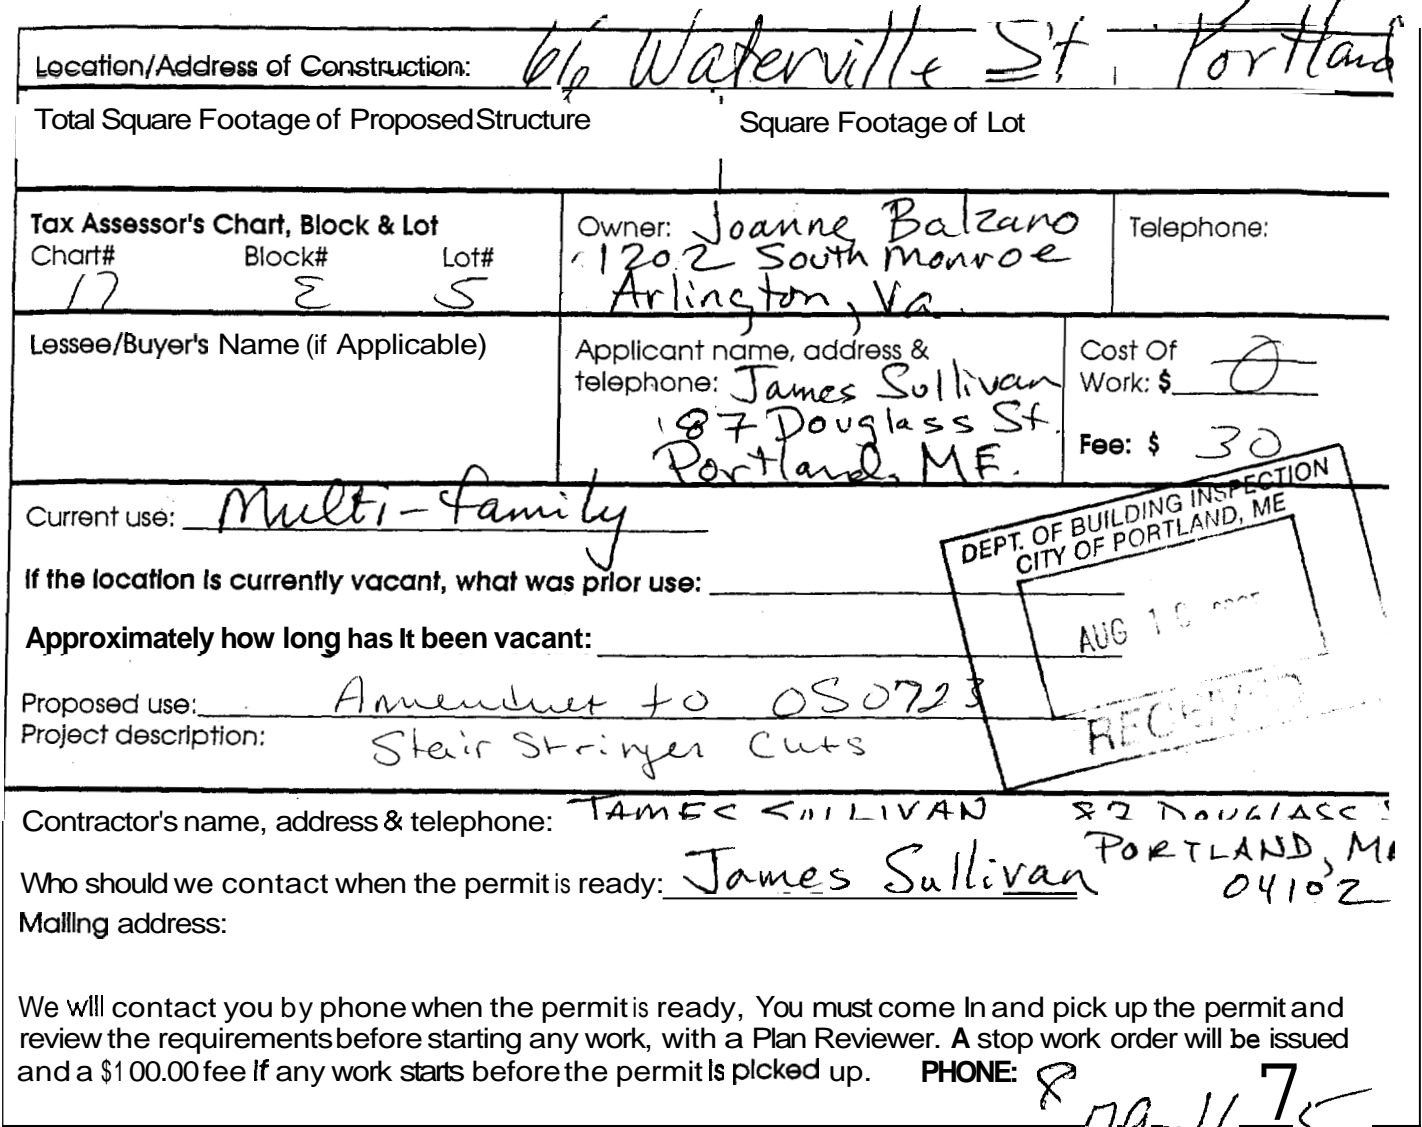 Location/Address of Construction: 66 Waterville St. Portland
Total Square Footage of Proposed Structure Square Footage of Lot
Tax Assessor's Chart, Block & Lot
Chart# Block# Lot#
17 E 5
Owner: Joanne Balzano
1202 South Monroe
Arlington, Va.
Telephone:
Lessee/Buyer's Name (if Applicable)
Applicant name, address &
telephone: James Sullivan
87 Douglass St.
Portland, ME.
Cost Of
Work: $ 0
Fee: $ 30
Current use: Multi-family
If the location is currently vacant, what was prior use:
Approximately how long has it been vacant:
DEPT. OF BUILDING INSPECTION
CITY OF PORTLAND, ME
AUG 10
RECEIVED
Proposed use: Amendmet to 050723
Project description: Stair Stringer Cuts
Contractor's name, address & telephone: JAMES SULLIVAN 87 DOUGLASS
PORTLAND,
04102
Who should we contact when the permit is ready: James Sullivan
Mailing address:
We will contact you by phone when the permit is ready, You must come In and pick up the permit and
review the requirements before starting any work, with a Plan Reviewer. A stop work order will be issued
and a $100.00 fee if any work starts before the permit is picked up. PHONE: